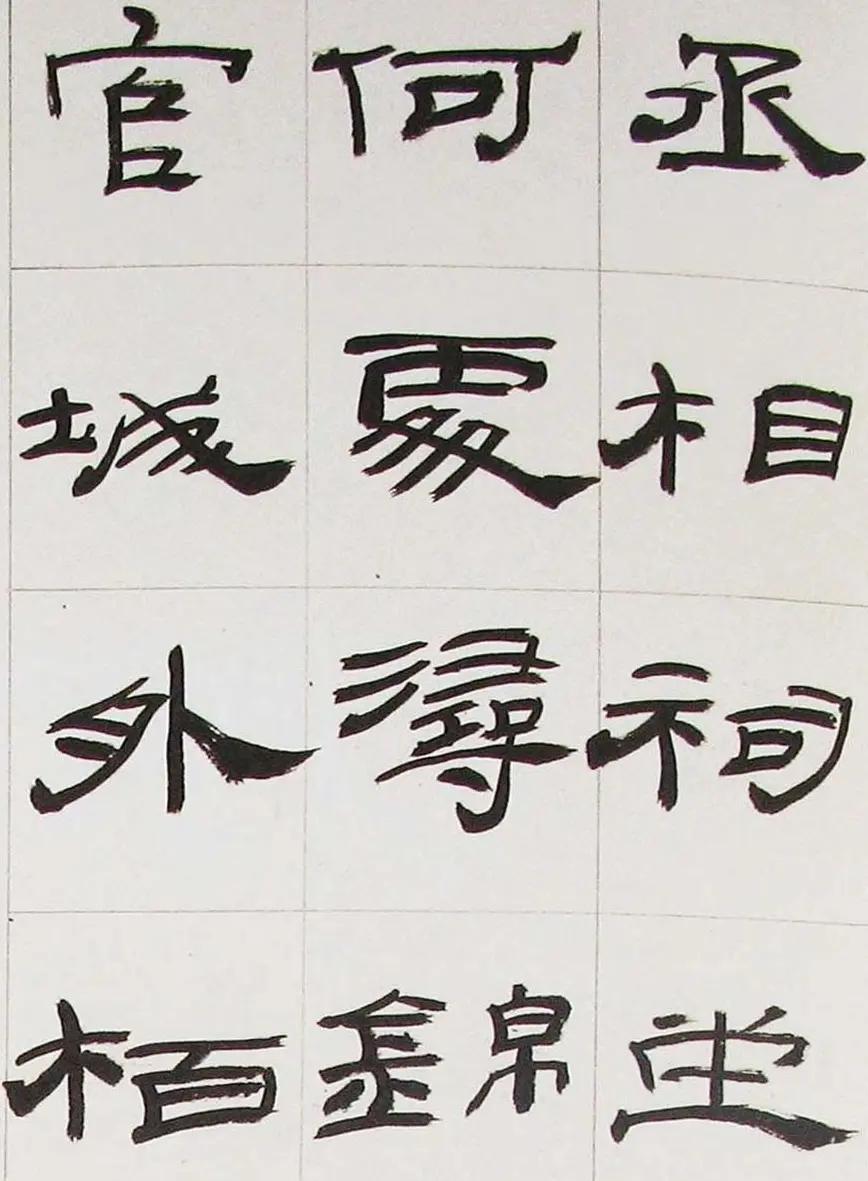 丞相祠堂
何處尋錦
官城外栢